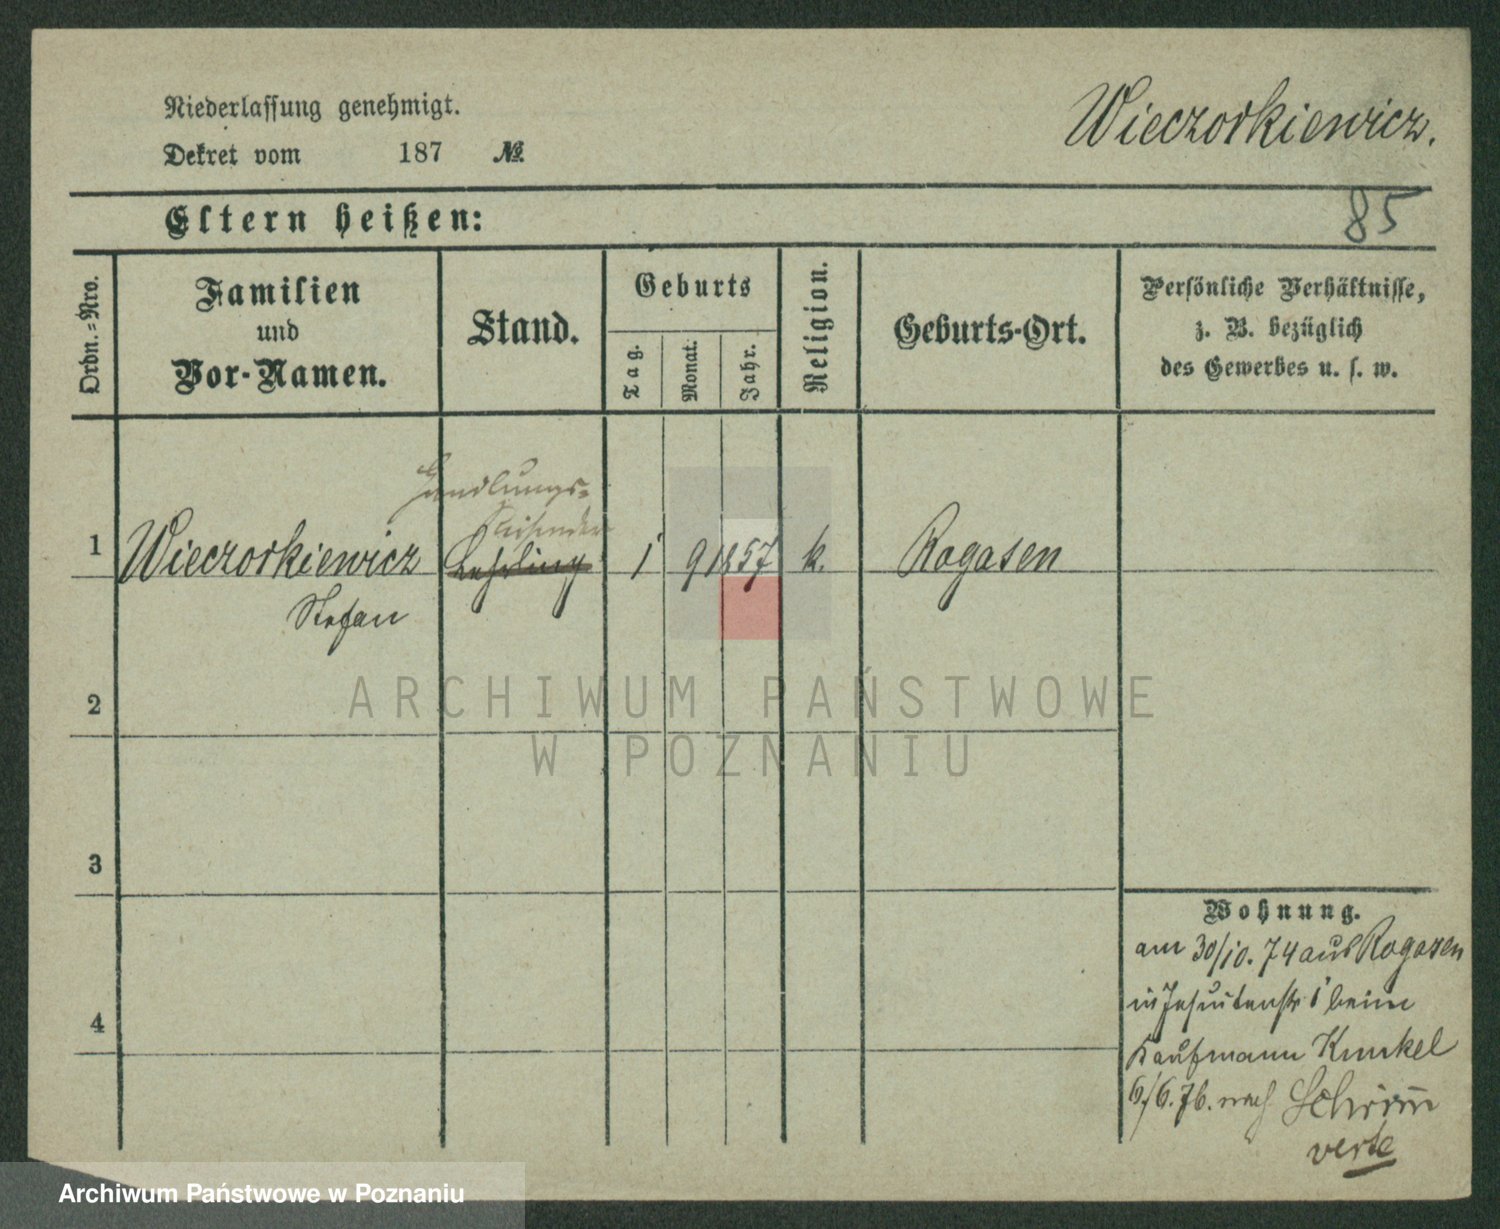 Niederlassung genehmigt.
Dekret vom 187 №
Wieczorkiewicz.
Eltern heißen:
85
Ordn.=Nro.
Familien
und
Vor-Namen.
Stand.
Geburts
Tag.
Monat.
Jahr.
Religion.
Geburts-Ort.
Persönliche Verhältnisse,
z. B. bezüglich
des Gewerbes u. s. w.
Handlungs-
Reisender
1 Wieczorkiewicz Lehrling 1 9 1857 k. Rogasen
Stefan
2
ARCHIWUM PAŃSTWOWE
W POZNANIU
3
Wohnung.
am 30/10. 74 aus Rogasen
in Jesuitenstr 1 beim
4
Kaufmann Kunkel
6/6. 76. nach Schrimm
verte
Archiwum Państwowe w Poznaniu